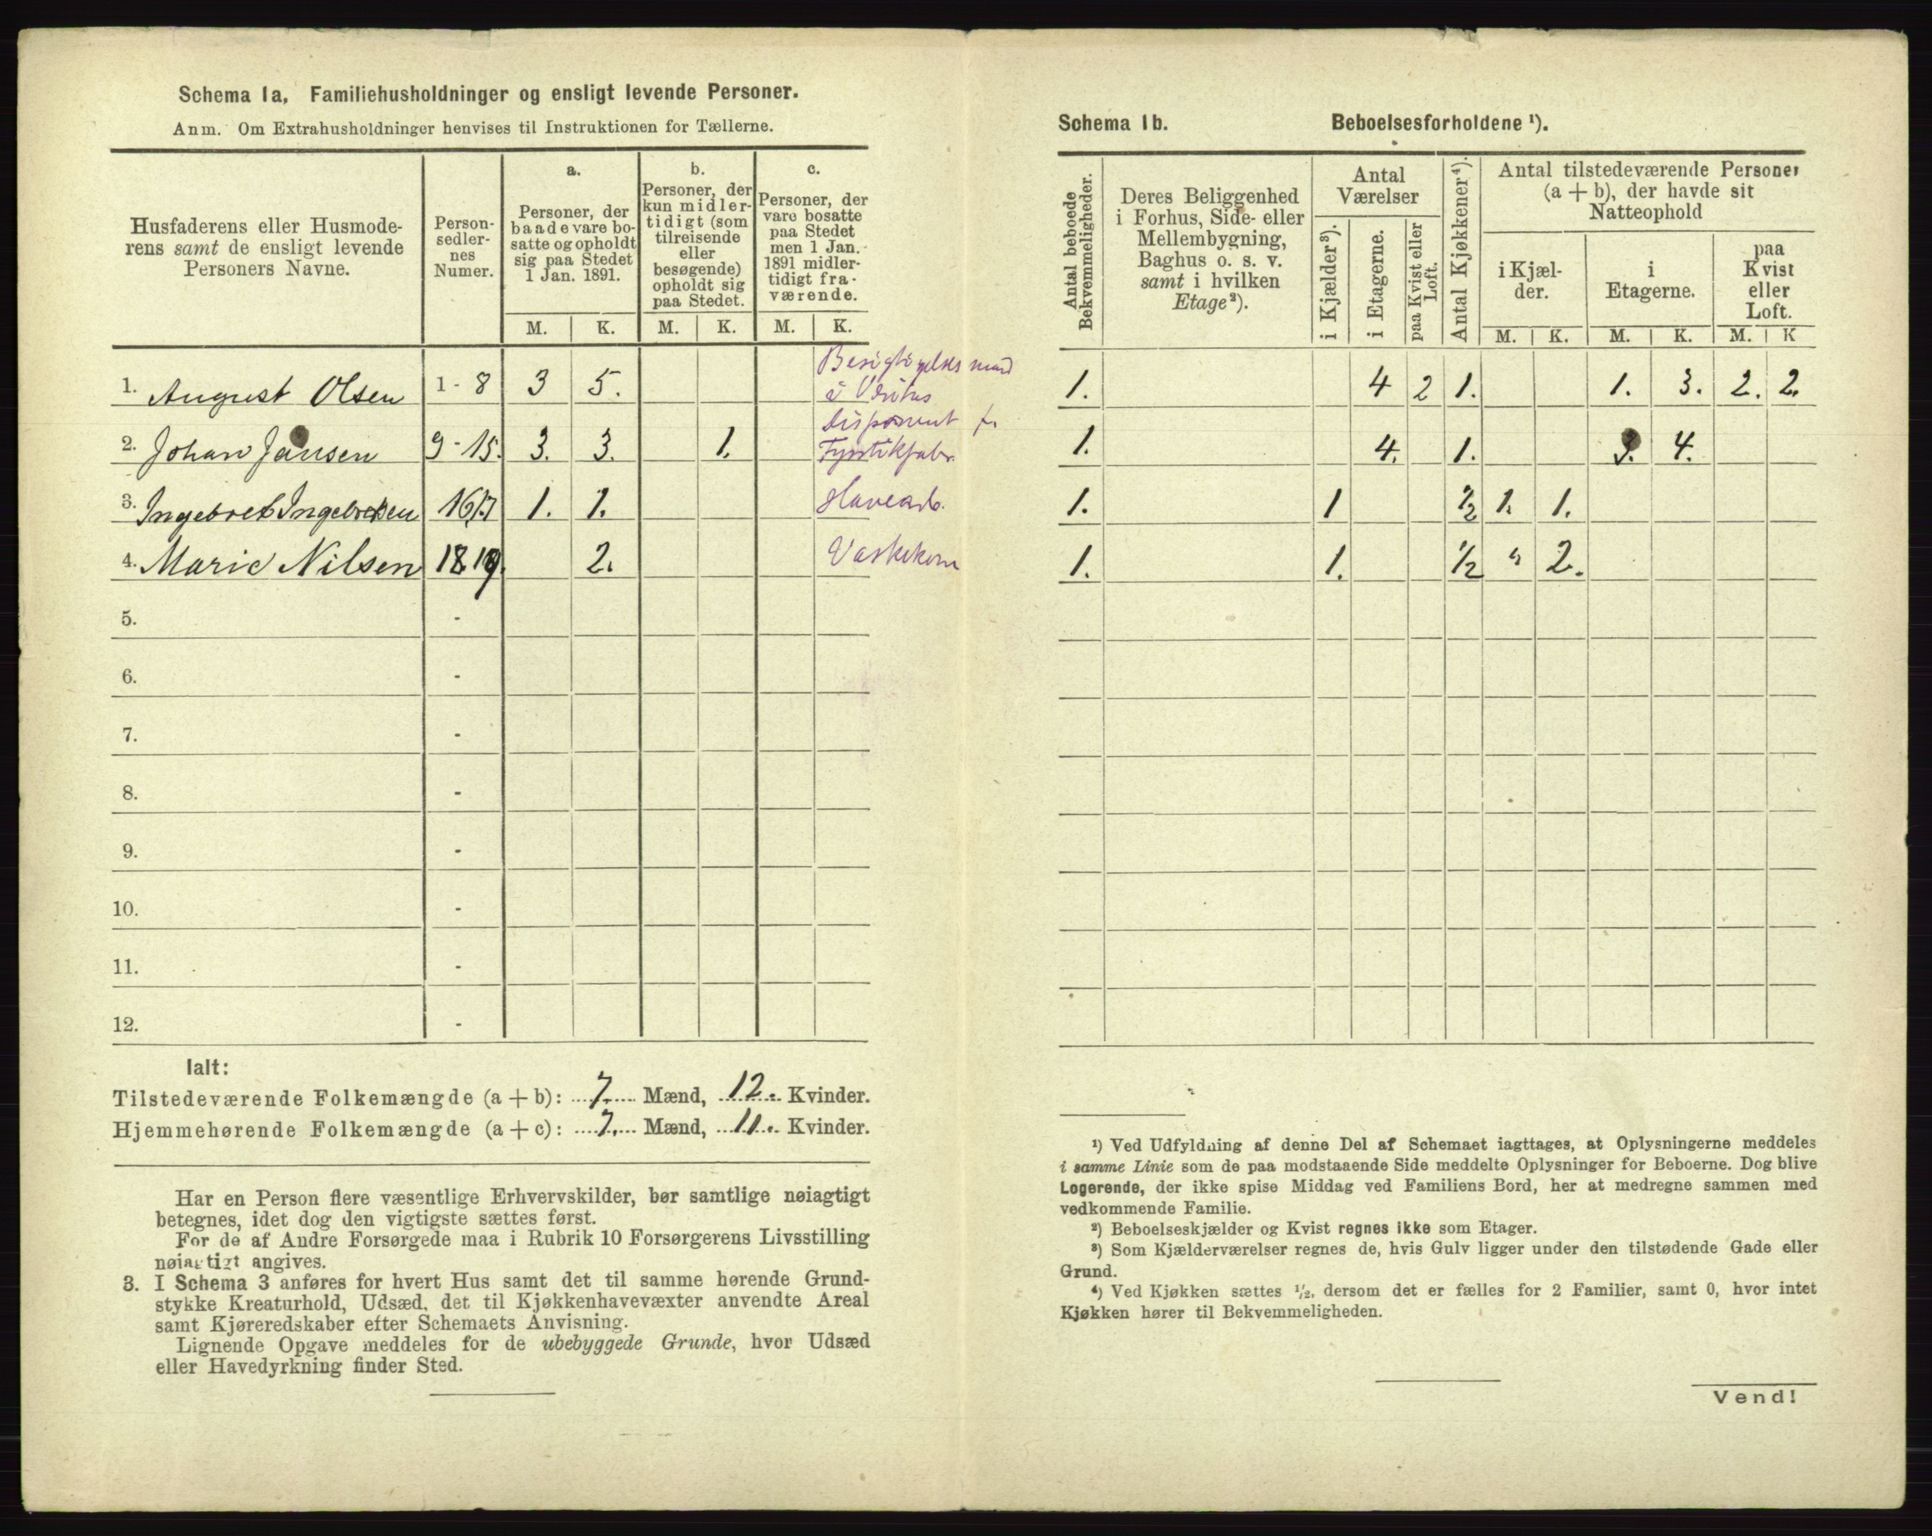 Schema 1a. Familiehusholdninger og ensligt levende Personer.
Anm. Om Extrahusholdninger henvises til Instruktionen for Tællerne.
Husfaderens eller Husmode-
rens samt de ensligt levende
Personers Navne.
Person-
sedler-
nes
Numer.
a.
Personer, der
baade vare bo-
satte og opholdt
sig paa Stedet
1 Jan. 1891.
b.
Personer, der
kun midler-
tidigt (som
tilreisende
eller
besøgende)
opholdt sig
paa Stedet.
c.
Personer, der
vare bosatte
paa Stedet
men 1 Jan.
1891 midler-
tidigt fra-
værende.
M. K. M. K. M. K.
1. August Olsen 1 - 8 3 5. Besigtigelsesmand
i Veritas
2. Johan Jansen 9 - 15. 3. 3. 1. Disponent f.
Fyrstikfabr.
3. Ingebret Ingebretsen 16-17 1. 1. Havearb.
4. Marie Nilsen 18-19. 2. Vaskekone
5. -
6. -
7. -
8. -
9. -
10. -
11. -
12. -
Ialt:
Tilstedeværende Folkemængde (a + b): 7. Mænd, 12. Kvinder.
Hjemmehørende Folkemængde (a + c): 7. Mænd, 11. Kvinder.
Har en Person flere væsentlige Erhvervskilder, bør samtlige nøiagtigt
betegnes, idet dog den vigtigste sættes først.
For de af Andre Forsørgede maa i Rubrik 10 Forsørgerens Livsstilling
nøiagtigt angives.
3. I Schema 3 anføres for hvert Hus samt det til samme hørende Grund-
stykke Kreaturhold, Udsæd, det til Kjøkkenhavevæxter anvendte Areal
samt Kjøreredskaber efter Schemaets Anvisning.
Lignende Opgave meddeles for de ubebyggede Grunde, hvor Udsæd
eller Havedyrkning finder Sted.
Schema 1b. Beboelsesforholdene ¹).
Antal beboede
Bekvemmeligheder.
Deres Beliggenhed
i Forhus, Side- eller
Mellembygning,
Baghus o. s. v.
samt i hvilken
Etage²).
Antal
Værelser
i Kjælder³).
i Etagerne.
paa Kvist eller
Loft.
Antal Kjøkkener⁴).
Antal tilstedeværende Personer
(a + b), der havde sit
Natteophold
i Kjæl-
der.
i
Etagerne.
paa
Kvist
eller
Loft.
M. K. M. K. M. K
1. 4 2 1. 1. 3. 2. 2.
1. 4. 1. 3. 4.
1. 1 ½ 1. 1.
1. 1. ½ " 2.
¹) Ved Udfyldning af denne Del af Schemaet iagttages, at Oplysningerne meddeles
i samme Linie som de paa modstaaende Side meddelte Oplysninger for Beboerne. Dog blive
Logerende, der ikke spise Middag ved Familiens Bord, her at medregne sammen med
vedkommende Familie.
²) Beboelseskjælder og Kvist regnes ikke som Etager.
³) Som Kjælderværelser regnes de, hvis Gulv ligger under den tilstødende Gade eller
Grund.
⁴) Ved Kjøkken sættes ½, dersom det er fælles for 2 Familier, samt 0, hvor intet
Kjøkken hører til Bekvemmeligheden.
Vend!